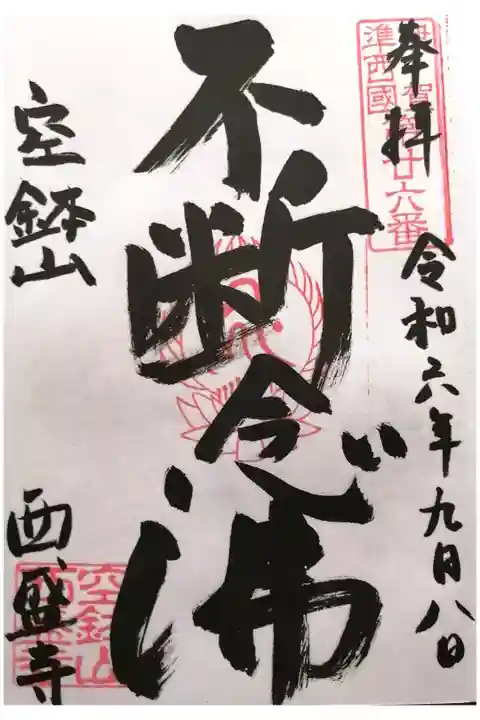 奉拝
令和六年九月八日
伊賀
準西國
廿六番
不断念佛
空鉢山
西盛寺
空鉢山